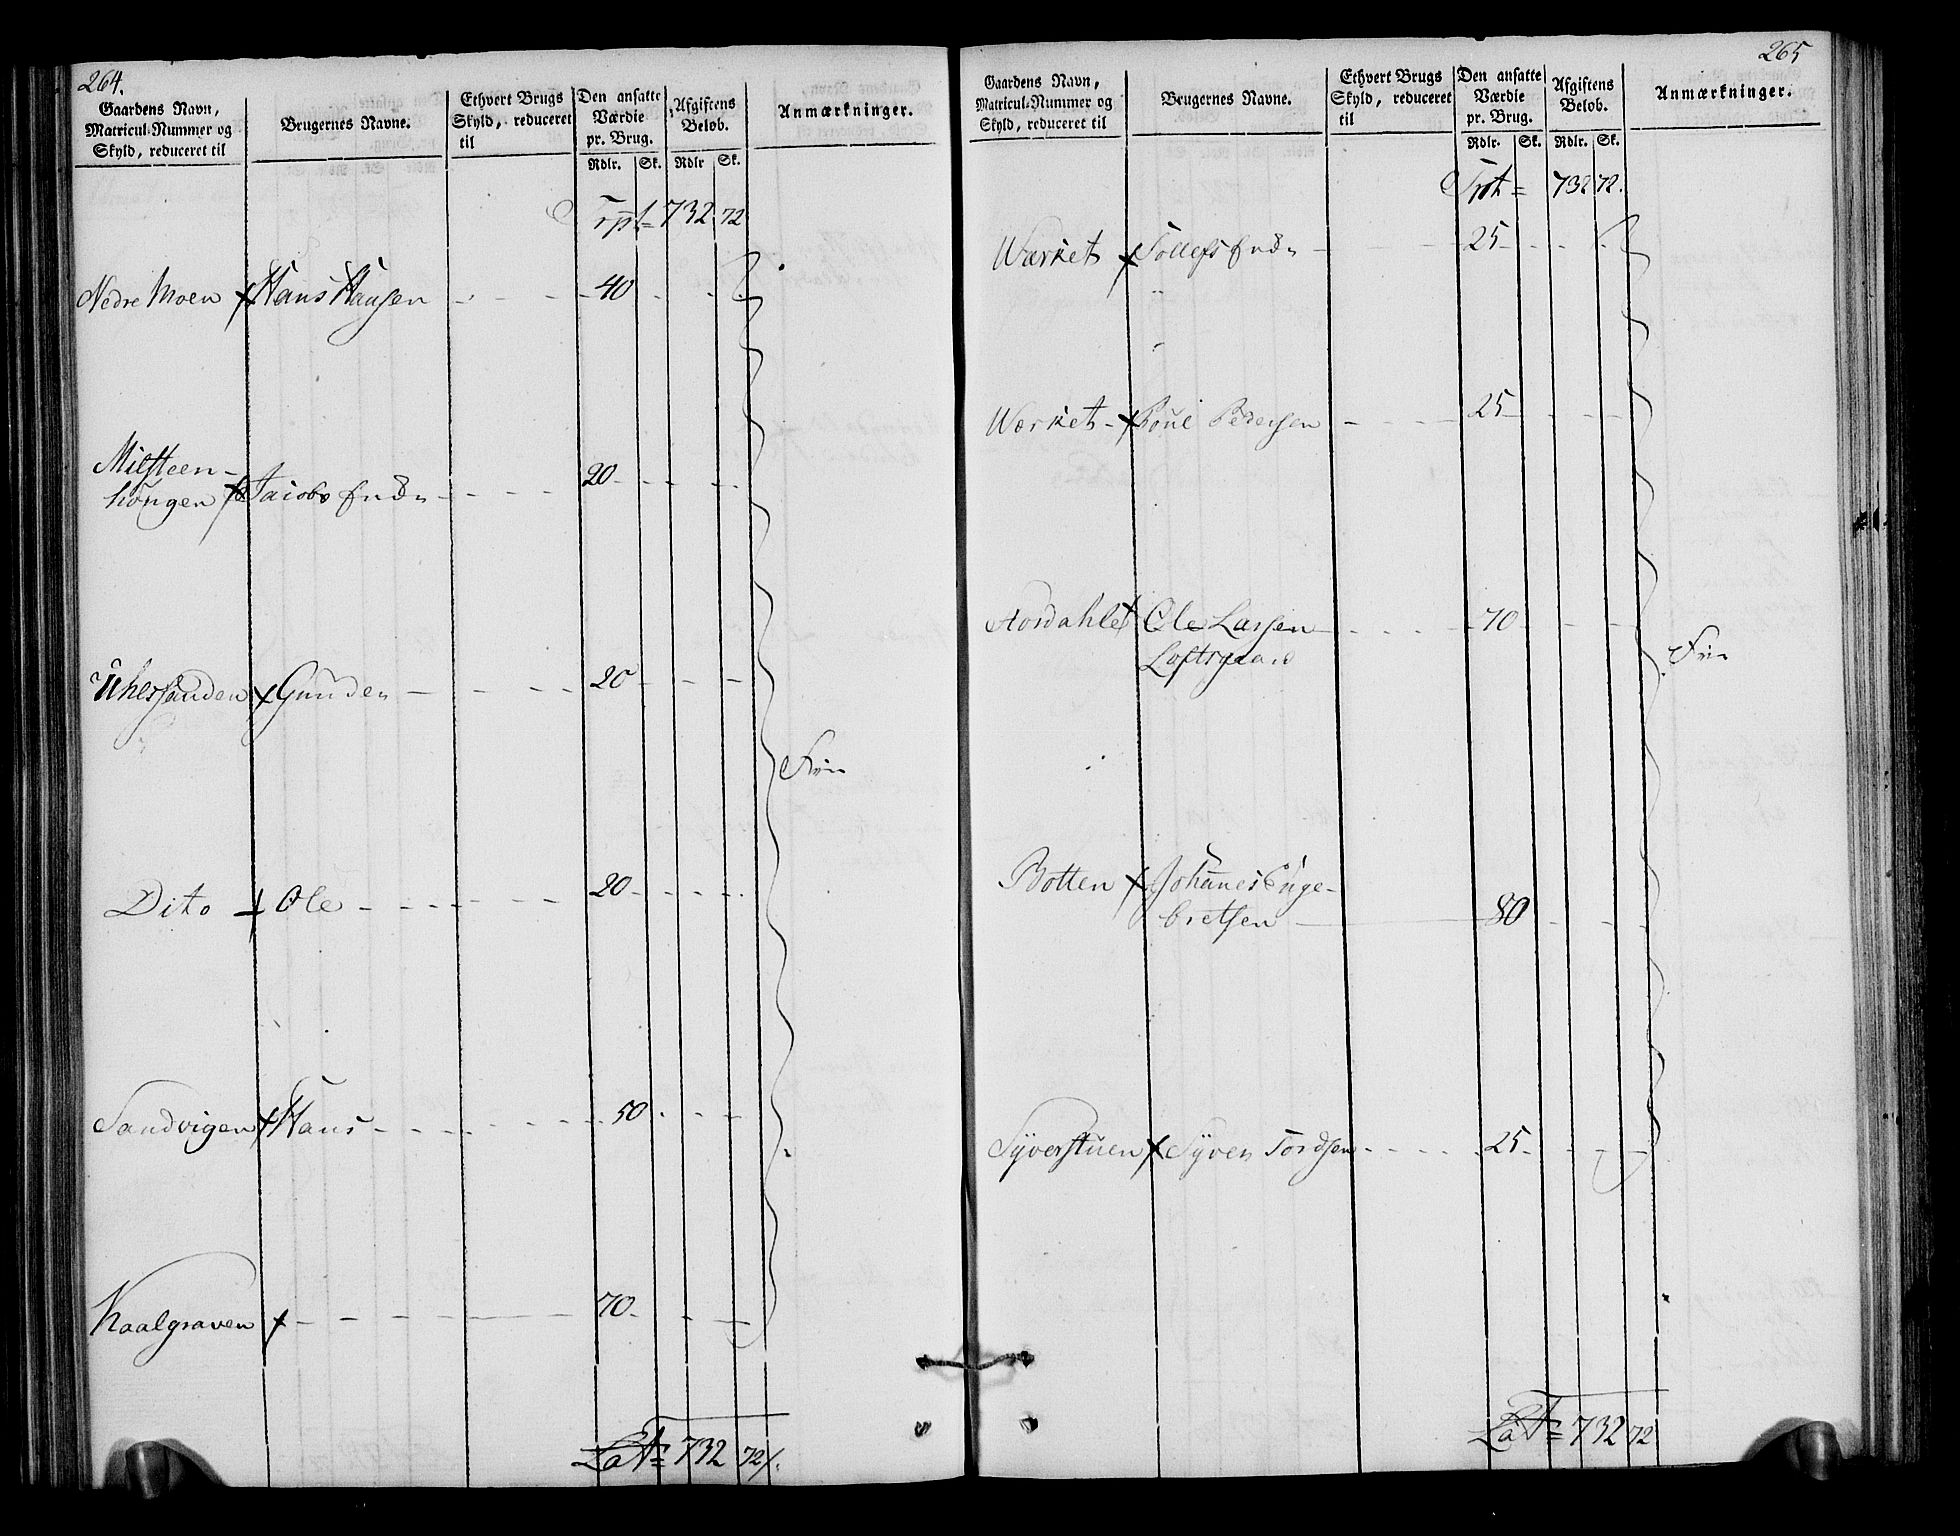 264.
Gaardens Navn, Matricul-Nummer og Skyld, reduceret til
Brugernes Navne.
Ethvert Brugs Skyld, reduceret til
Den ansatte Værdie pr. Brug.
Afgiftens Beløb.
Anmærkninger.
Rdlr. Sk. Rdlr Sk.
Trpt = 732 72
Nedre Moen x Hans Hansen 40
Milsteen-
hougen x Jacobs Enke 20
x Gunder 20
Friе
Dito x Ole 20
Sandvigen x Hans 50
Kaalgraven x 70
Lat = 732 72/.
265
Gaardens Navn, Matricul-Nummer og Skyld, reduceret til
Brugernes Navne.
Ethvert Brugs Skyld, reduceret til
Den ansatte Værdie pr. Brug.
Afgiftens Belob.
Anmærkninger.
Rdlr. Sk. Rdlr. Sk.
Trpt = 732 72.
Wærket x Tollefs Enke 25
Wærket x Poul Pedersen 25
Nordahle x Ole Larsen 70
Loftsgaard
Frie
Botten x Johannes Enge-
bretsen 80
Syverstuen x Syver Tordsen 25
Lat = 732 72